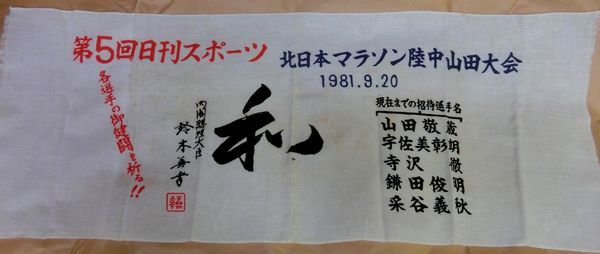 第5回日刊スポーツ 北日本マラソン陸中山田大会
1981.9.20
各選手の御健闘を祈る!!
和
内閣総理大臣
鈴木善幸
現在までの招待選手名
山田敬蔵
宇佐美彰朗
寺沢徹
鎌田俊明
采谷義秋